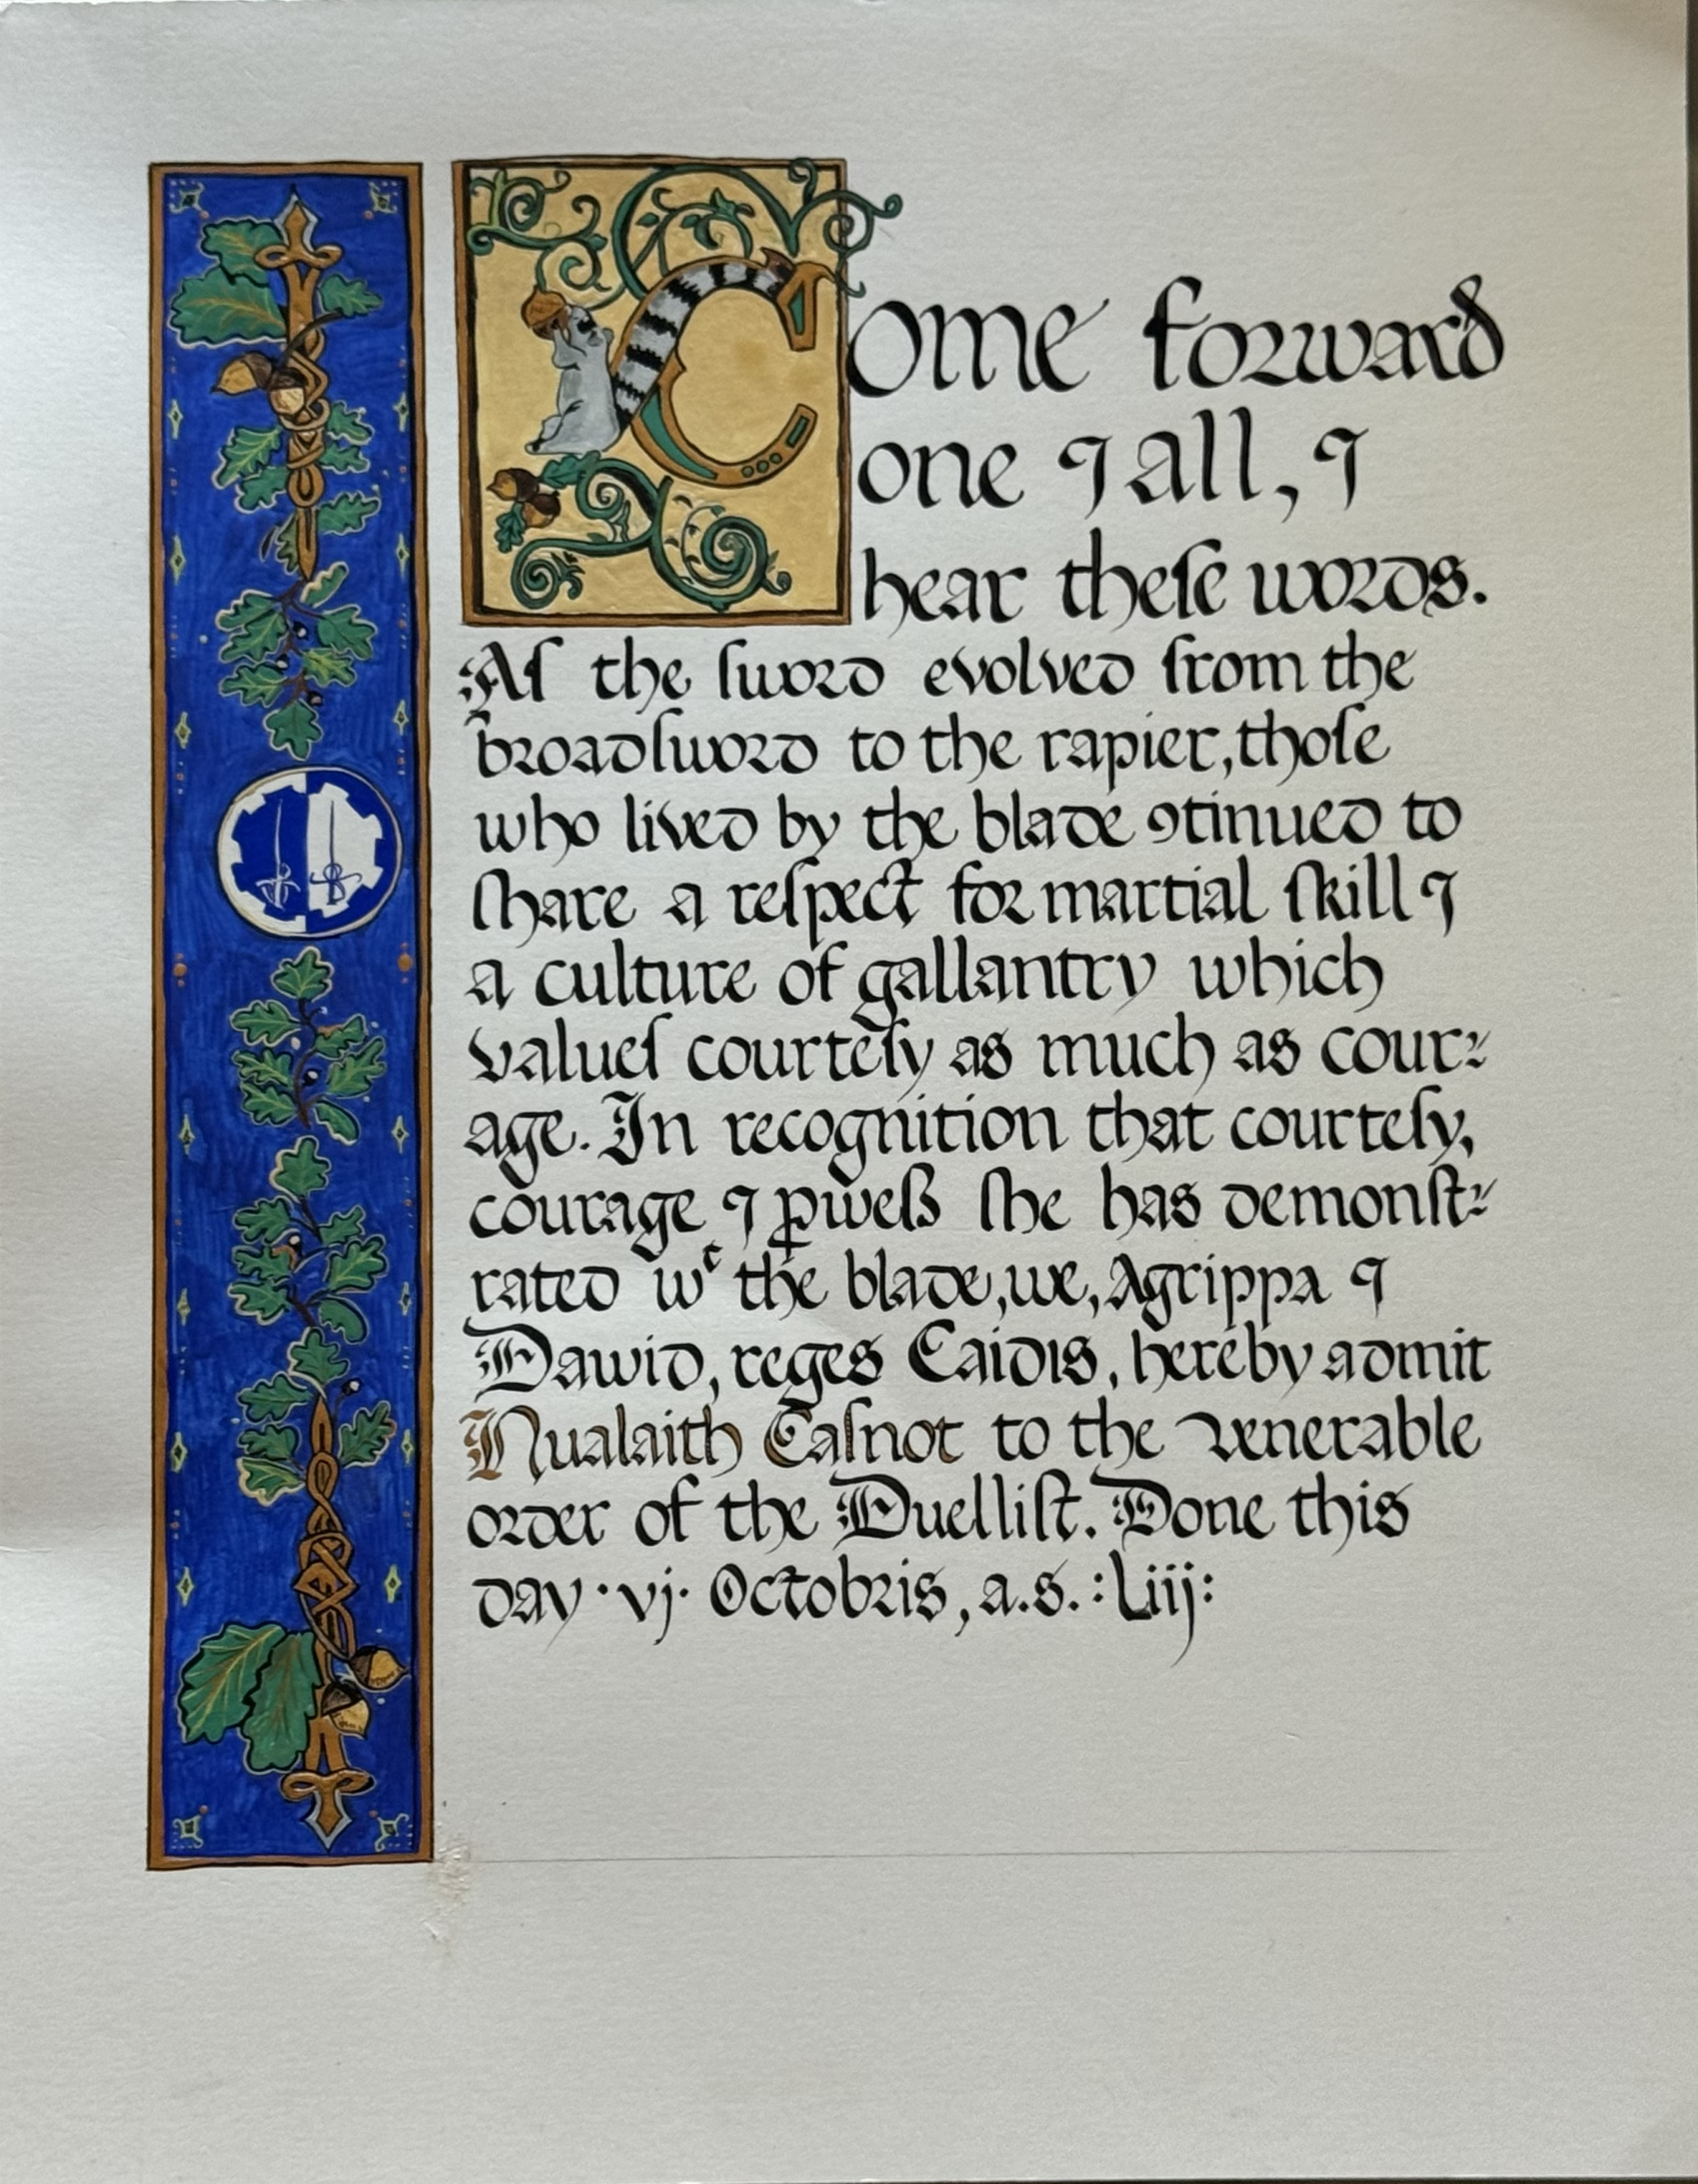 Come forward
one ⁊ all, ⁊
hear theſe words.
Aſ the ſword evolved from the
broadſword to the rapier, thoſe
who lived by the blade ꝯtinued to
ſhare a reſpect for martial ſkill ⁊
a culture of gallantry which
valueſ courteſy as much as cour⸗
age. In recognition that courteſy,
courage ⁊ ꝓweß ſhe has demonſt⸗
rated wᵗ the blade, we, Agrippa ⁊
Dawid, reges Caidis, hereby admit
Nualaith Caſnot to the venerable
order of the Duelliſt. Done this
day ·vj· Octobris, a.s. :Liij: